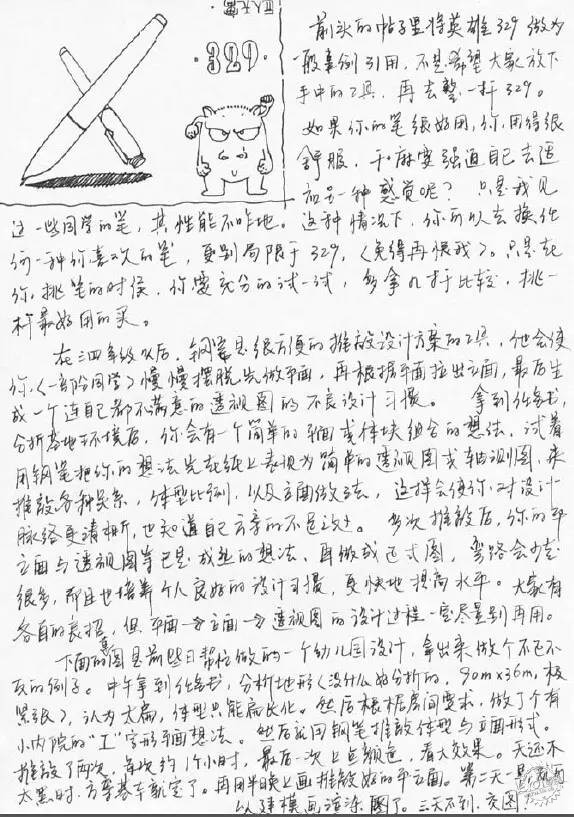 巨人无霸
·329·
前头的帖子里将英雄329做为
一般案例引用，不是希望大家放下
手中的工具，再去整一杆329。
如果你的笔很好用，你用得很
舒服，干麻要强迫自己去适
应另一种感觉呢？只是我见
过一些同学的笔，其性能不咋地。这种情况下，你可以去换任
何一种你喜欢的笔，更别局限于329，〈免得再怏我〉。只是在
你挑笔的时候，你要充分的试一试，多拿几杆比较，挑一
杆最好用的买。
在三四年级以后，钢笔是很方便的推敲设计方案的工具，他会使
你〈一部份同学〉慢慢摆脱先做平面，再根据平面拉出立面，最后生
成一个连自己都不满意的透视图的不良设计习惯。拿到任务书，
分析基地环境后，你会有一个简单的平面或体块组合的想法，试着
用钢笔把你的想法先在纸上表现为简单的透视图或轴测图，来
推敲各种关系，体型比例，以及立面做法，这样会使你对设计
脉络更清晰，也知道自己方案的不足之处。多次推敲后，你的平
立面与透视图等已是成熟的想法，再做成正式图，弯路会少走
很多，而且也培养个人良好的设计习惯，更快地提高水平。大家有
各自的表招，但平面→立面→透视图的设计过程一定尽量别再用。
下面的图是前些日帮忙做的一个幼儿园设计，拿出来做个不正不
反的例子。中午拿到任务书，分析地形〈没什么好分析的，90m×36m，极
紧张〉，认为太扁，体型只能扁长化。然后根据房间要求，做了个有
小内院的“工”字形平面想法。然后就用钢笔推敲体型与立面形式。
推敲了两次，每次约1个小时，最后一次上点颜色，看大效果。天还不
太黑时，方案基本就定了。再用半晚上画推敲好的平立面。第二天
以建模画渲染图了。三天不到，交图！